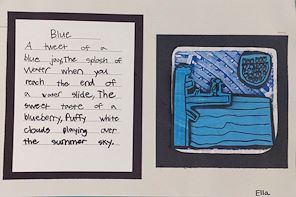 Blue
A tweet of a
blue jay, The splash of
water when you
reach the end of
a water slide, The
sweet taste of a
blueberry, Puffy white
clouds playing over
the summer sky.
Ella